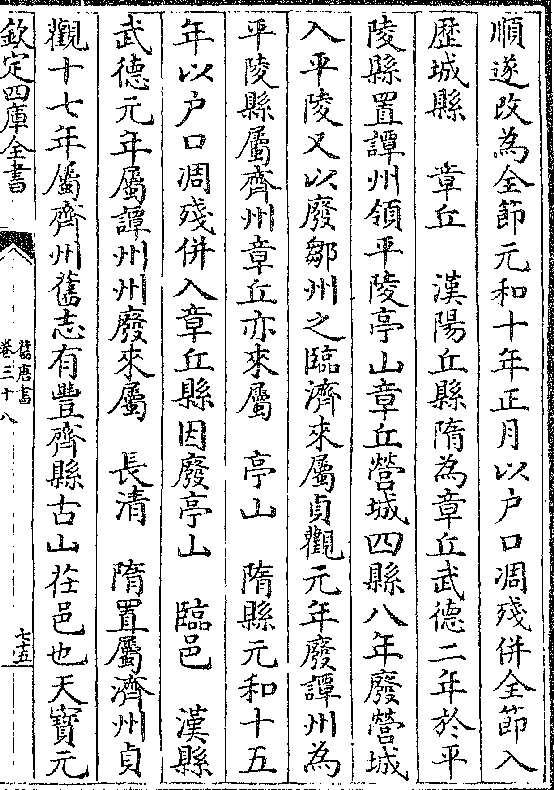 順遂改為全節元和十年正月以户口凋殘併全節入
歴城縣　章丘　漢陽丘縣隋為章丘武德二年於平
陵縣置譚州領平陵亭山章丘營城四縣八年廢營城
入平陵又以廢鄒州之臨濟來屬貞觀元年廢譚州為
平陵縣屬齊州章丘亦來屬　亭山　隋縣元和十五
年以户口凋殘併入章丘縣因廢亭山　臨邑　漢縣
武德元年屬譚州州廢來屬　長清　隋置屬濟州貞
觀十七年屬齊州舊志有豐齊縣古山茌邑也天寶元
欽定四庫全書
舊唐書
卷三十八
七五